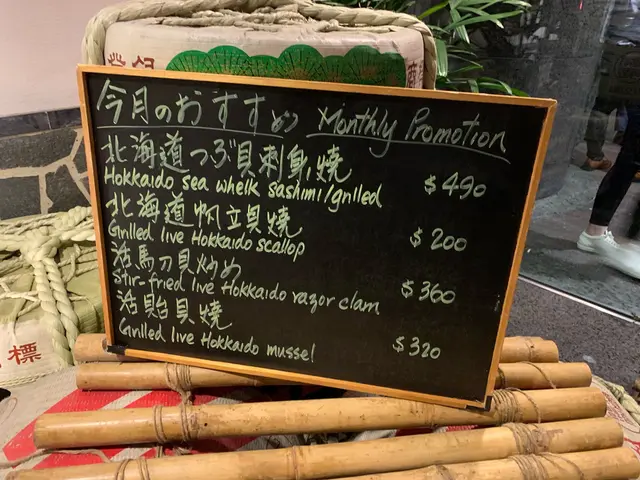 今月のおすすめ Monthly Promotion
北海道つぶ貝刺身,焼
Hokkaido sea whelk sashimi/grilled $490
北海道帆立貝焼
Grilled live Hokkaido scallop $200
活馬刀貝炒め
Stir-fried live Hokkaido razor clam $360
活貽貝焼
Grilled live Hokkaido mussel $320
標